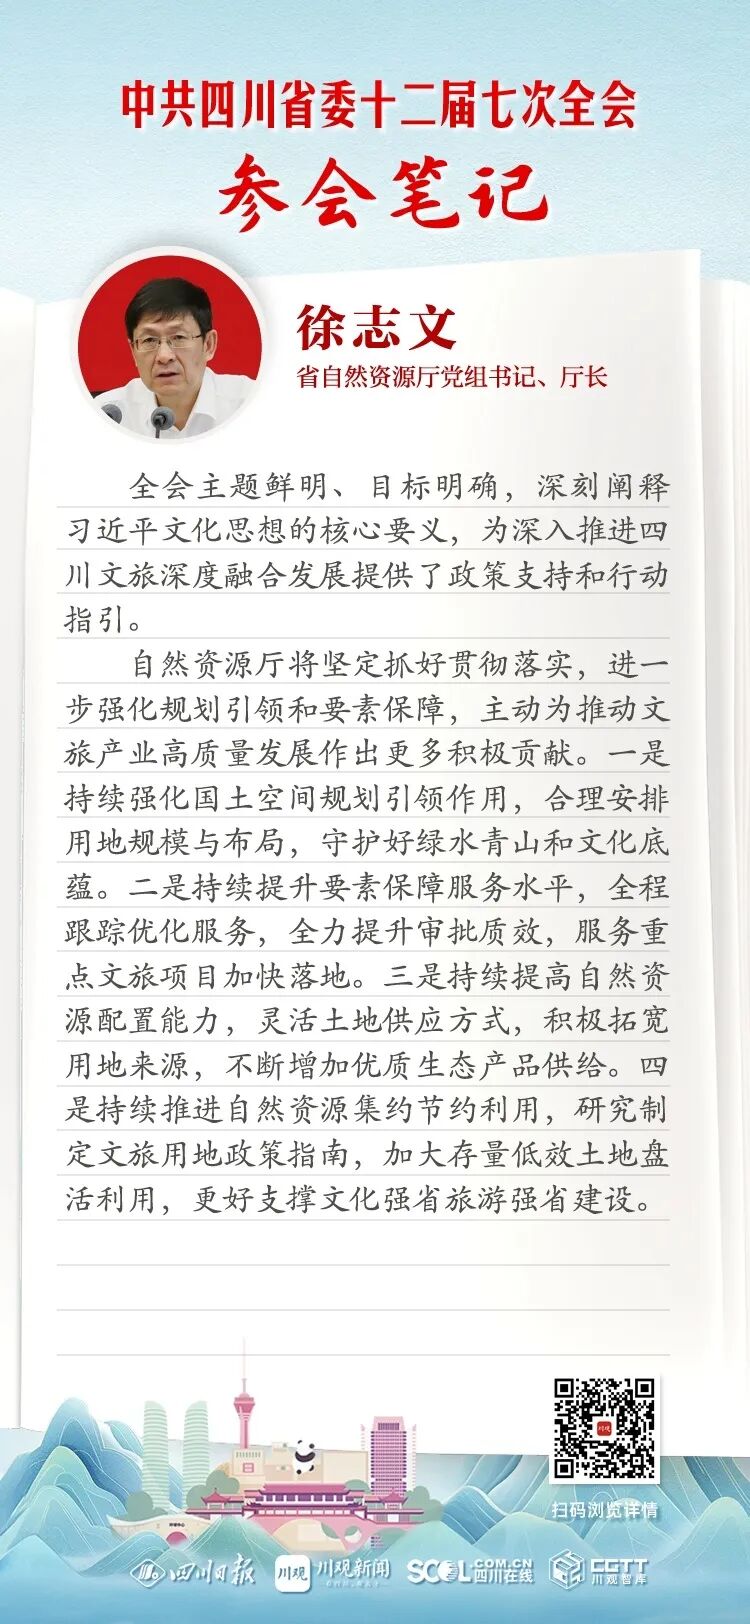 中共四川省委十二届七次全会
参会笔记
徐志文
省自然资源厅党组书记、厅长
全会主题鲜明、目标明确，深刻阐释
习近平文化思想的核心要义，为深入推进四
川文旅深度融合发展提供了政策支持和行动
指引。
自然资源厅将坚定抓好贯彻落实，进一
步强化规划引领和要素保障，主动为推动文
旅产业高质量发展作出更多积极贡献。一是
持续强化国土空间规划引领作用，合理安排
用地规模与布局，守护好绿水青山和文化底
蕴。二是持续提升要素保障服务水平，全程
跟踪优化服务，全力提升审批质效，服务重
点文旅项目加快落地。三是持续提高自然资
源配置能力，灵活土地供应方式，积极拓宽
用地来源，不断增加优质生态产品供给。四
是持续推进自然资源集约节约利用，研究制
定文旅用地政策指南，加大存量低效土地盘
活利用，更好支撑文化强省旅游强省建设。
川观
扫码浏览详情
四川日报
川观
川观新闻
SCOL.COM.CN
四川在线
CGTT
川观智库